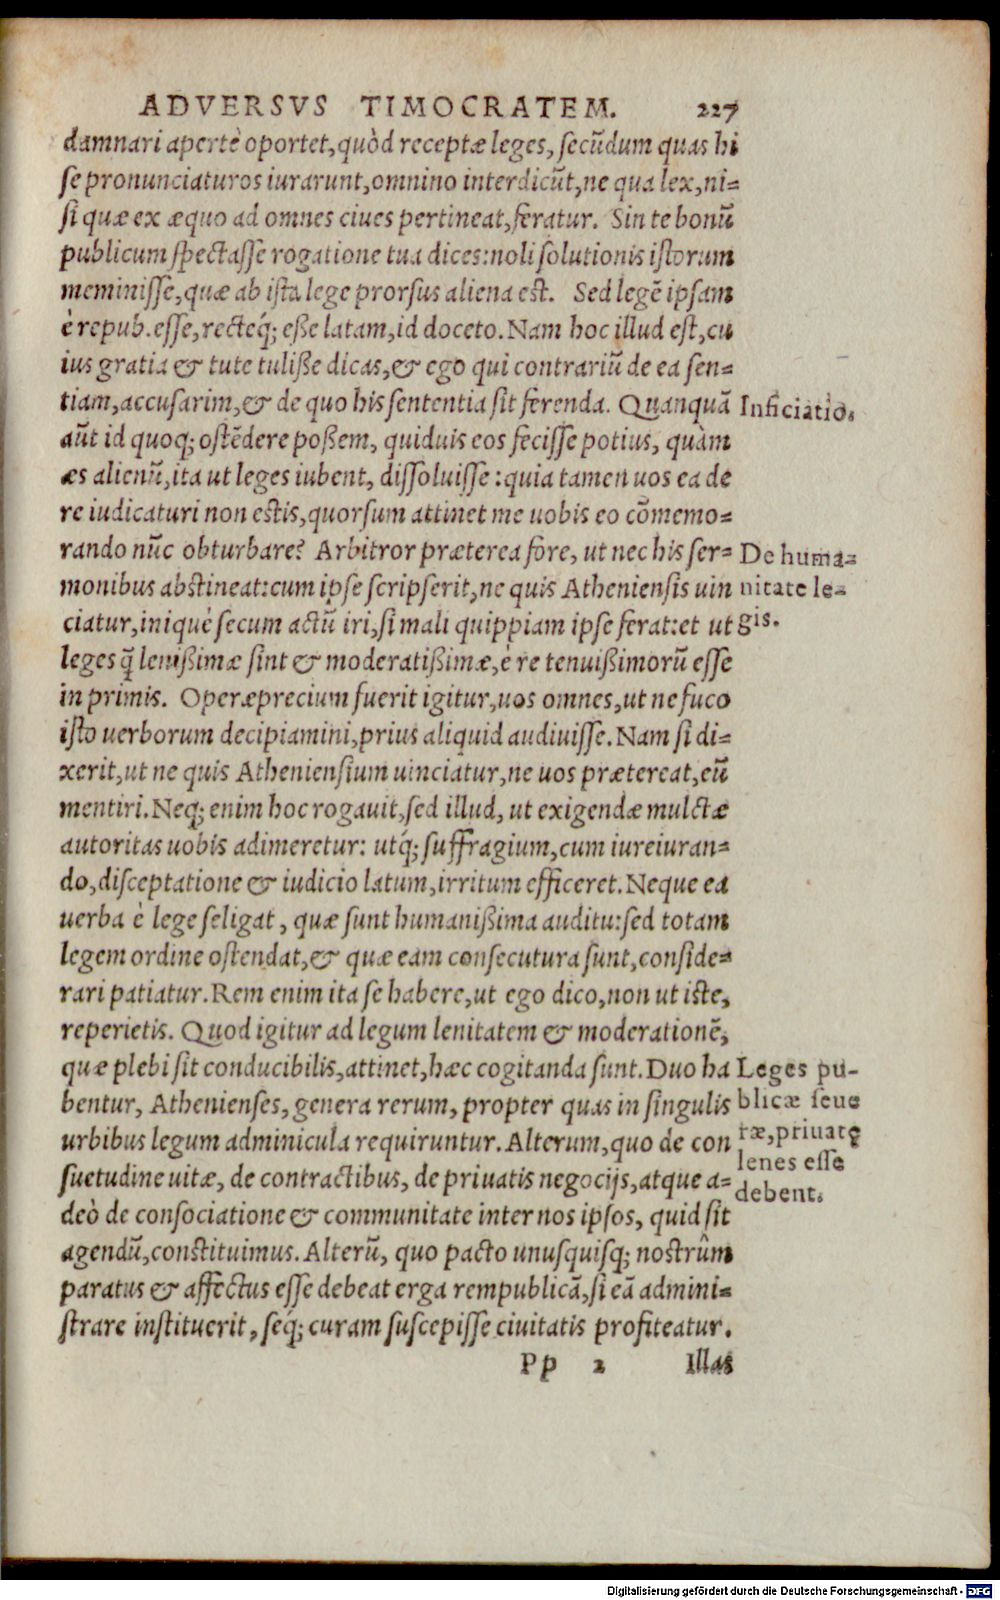 ADVERSVS TIMOCRATEM. 227
damnari apertè oportet, quòd receptæ leges, secūdum quas hi
se pronunciaturos iurarunt, omnino interdicūt, ne qua lex, ni=
si quæ ex æquo ad omnes ciues pertineat, feratur. Sin te bonū
publicum spectasse rogatione tua dices: noli solutionis istorum
meminisse, quæ ab ista lege prorsus aliena est. Sed legē ipsam
è repub. esse, recteq́; eße latam, id doceto. Nam hoc illud est, cu
ius gratia & tute tuliße dicas, & ego qui contrariū de ea sen=
tiam, accusarim, & de quo his sententia sit ferenda. Quanquā
Inficiatio.
aūt id quoq; ostēdere poßem, quiduis eos fecisse potius, quàm
æs alienū, ita ut leges iubent, dissoluisse: quia tamen uos ea de
re iudicaturi non estis, quorsum attinet me uobis eo cōmemo=
rando nūc obturbare? Arbitror præterea fore, ut nec his ser=
De huma=
monibus abstineat: cum ipse scripserit, ne quis Atheniensis uin
nitate le=
ciatur, iniquè secum actū iri, si mali quippiam ipse ferat: et ut
gis.
leges q̄ lenißimæ sint & moderatißimæ, è re tenuißimorū esse
in primis. Operæprecium fuerit igitur, uos omnes, ut ne fuco
isto uerborum decipiamini, prius aliquid audiuisse. Nam si di=
xerit, ut ne quis Atheniensium uinciatur, ne uos prætereat, eū
mentiri. Neq; enim hoc rogauit, sed illud, ut exigendæ mulctæ
autoritas uobis adimeretur: utq́; suffragium, cum iureiuran=
do, disceptatione & iudicio latum, irritum efficeret. Neque ea
uerba è lege seligat, quæ sunt humanißima auditu: sed totam
legem ordine ostendat, & quæ eam consecutura sunt, conside=
rari patiatur. Rem enim ita se habere, ut ego dico, non ut iste,
reperietis. Quod igitur ad legum lenitatem & moderationē,
quæ plebi sit conducibilis, attinet, hæc cogitanda sunt. Duo ha
Leges pu-
bentur, Athenienses, genera rerum, propter quas in singulis
blicæ seue
urbibus legum adminicula requiruntur. Alterum, quo de con
ræ, priuatę
suetudine uitæ, de contractibus, de priuatis negocijs, atque a=
lenes esse
deò de consociatione & communitate inter nos ipsos, quid sit
debent.
agendū, constituimus. Alterū, quo pacto unusquisq; nostrûm
paratus & affectus esse debeat erga rempublicā, si eā admini=
strare instituerit, seq́; curam suscepisse ciuitatis profiteatur.
Pp 2 Illas
Digitalisierung gefördert durch die Deutsche Forschungsgemeinschaft - DFG